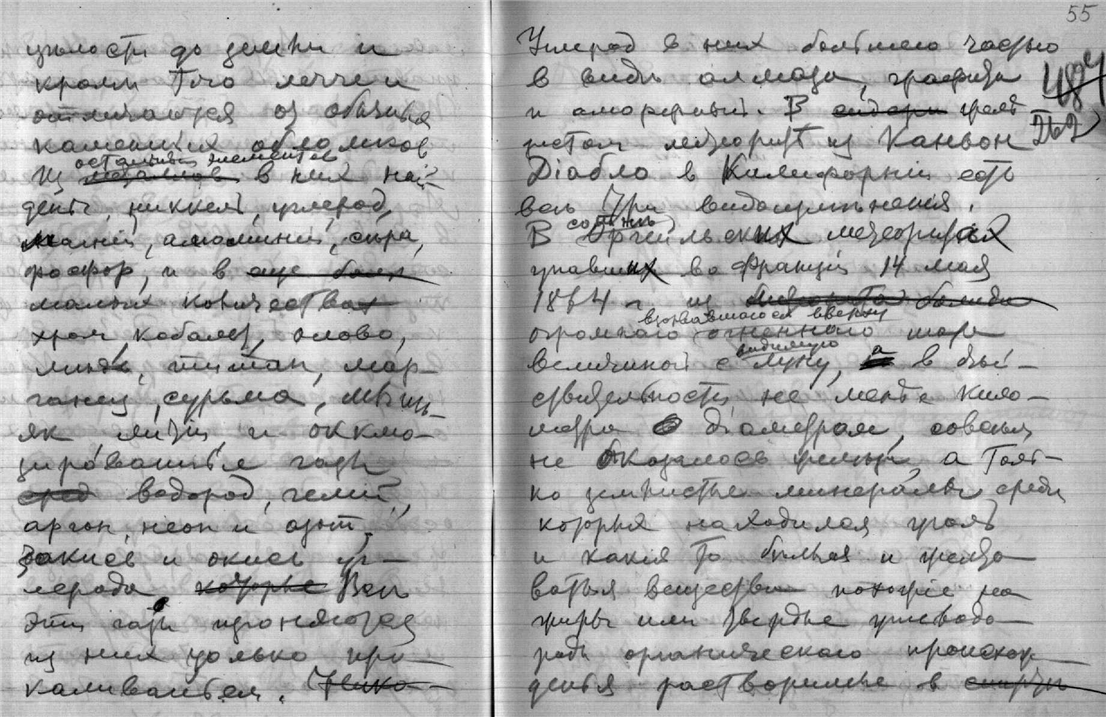 цѣлости до земли и
кромѣ того легче и
отличаются от обычных
каменных обломков
остальных элементов
Из металлов в них най-
дены, никкель, углерод,
магній, алюминій, сѣра,
фосфор, и в еще более
малых количествах
хром, кобальт, олово,
мѣдь, титан, мар-
ганец, сурьма, мышь-
як, литій и оккмо-
цированные газы
сред водород, гелій,
аргон, неон и азот,
закись и окись уг-
лерода, которые Всѣ
эти газы изгоняются
из них только про-
каливаньем.
55
Углерод в них большею частью
в видѣ алмаза, графита
и аморфный. В
484
262
метеорит из Каньон
Діабло в Калифорніи есть
всѣ три видоизмѣненія.
В Оргейльских метеоритах
упавших во Франціи 14 мая
1864 г. из
взорвавшагося вверху
огромнаго огненнаго шара
видимую
величиной с Луну, а в дѣй-
ствительности не менѣе кило-
метра в діаметрѣм, совсѣм
не оказалось желѣза, а толь-
ко землистые минералы среди
которых находился уголь
и какія то бѣлыя и желто-
ватыя вещества похожіе на
жиры или твердые углеводо-
роды органическаго происхож-
денья растворимые в спирту